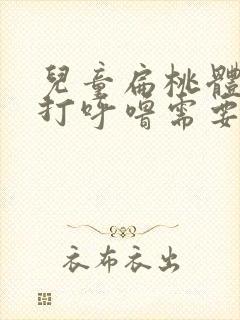 兒童扁桃體
打呼嚕需要
衣布衣出